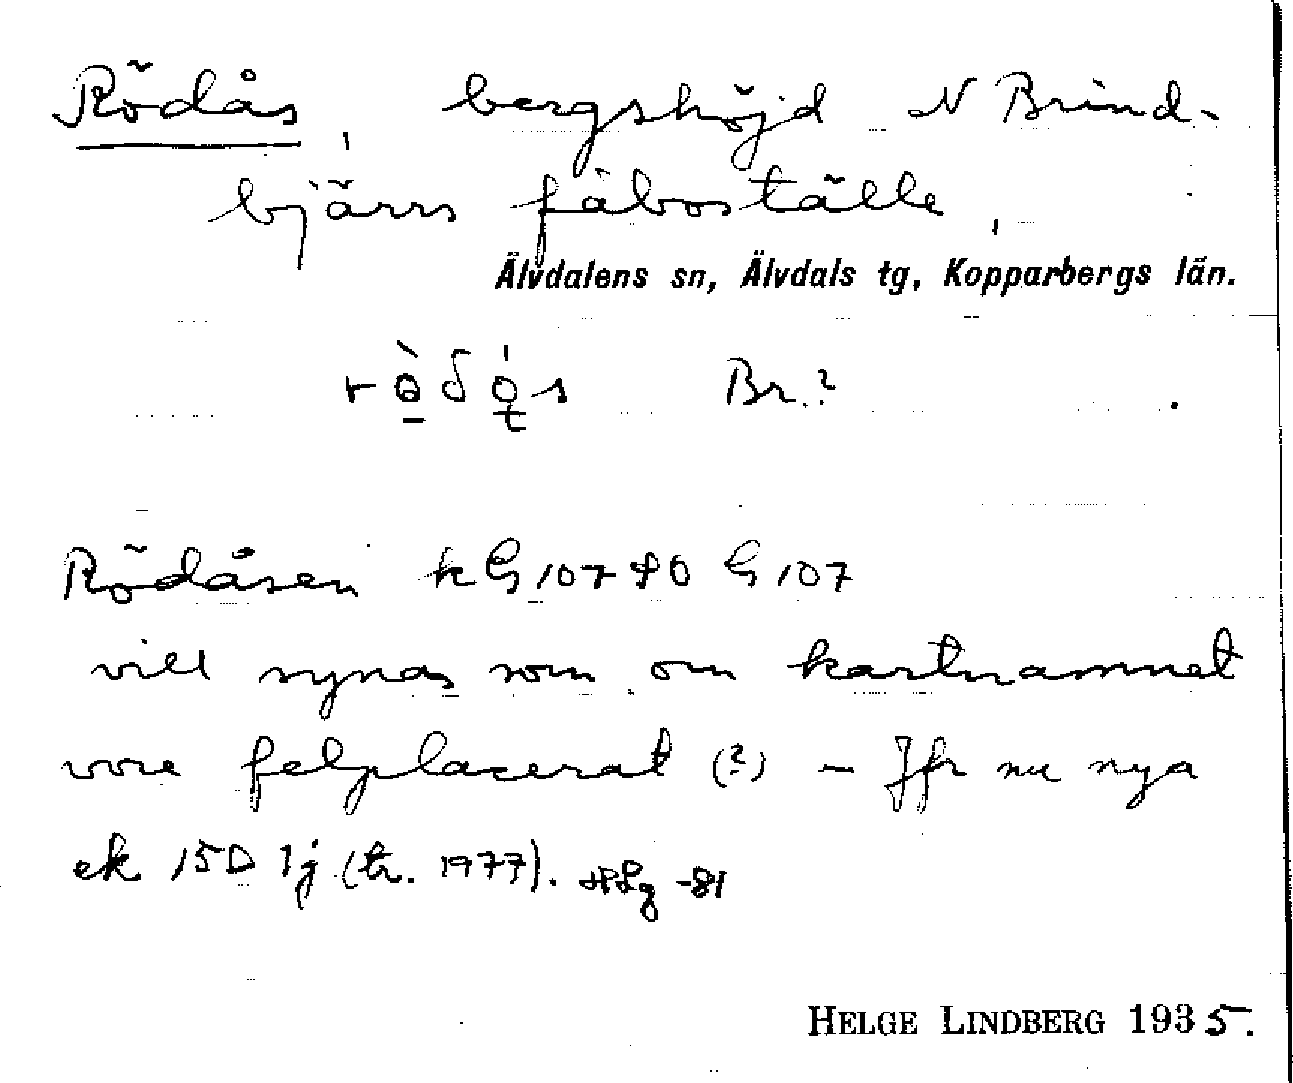 Rödås, bergshöjd N Brind-
bjärrs fäboställe,
Älvdalens sn, Älvdals tg, Kopparbergs län.
Br.?
Rödåsen kG107 SO G107
vill synas som om kartnamnet
vore felplacerat (?) – Jfr nu nya
ek 15D 1j (tr. 1977). HLg -81
HELGE LINDBERG 1935.